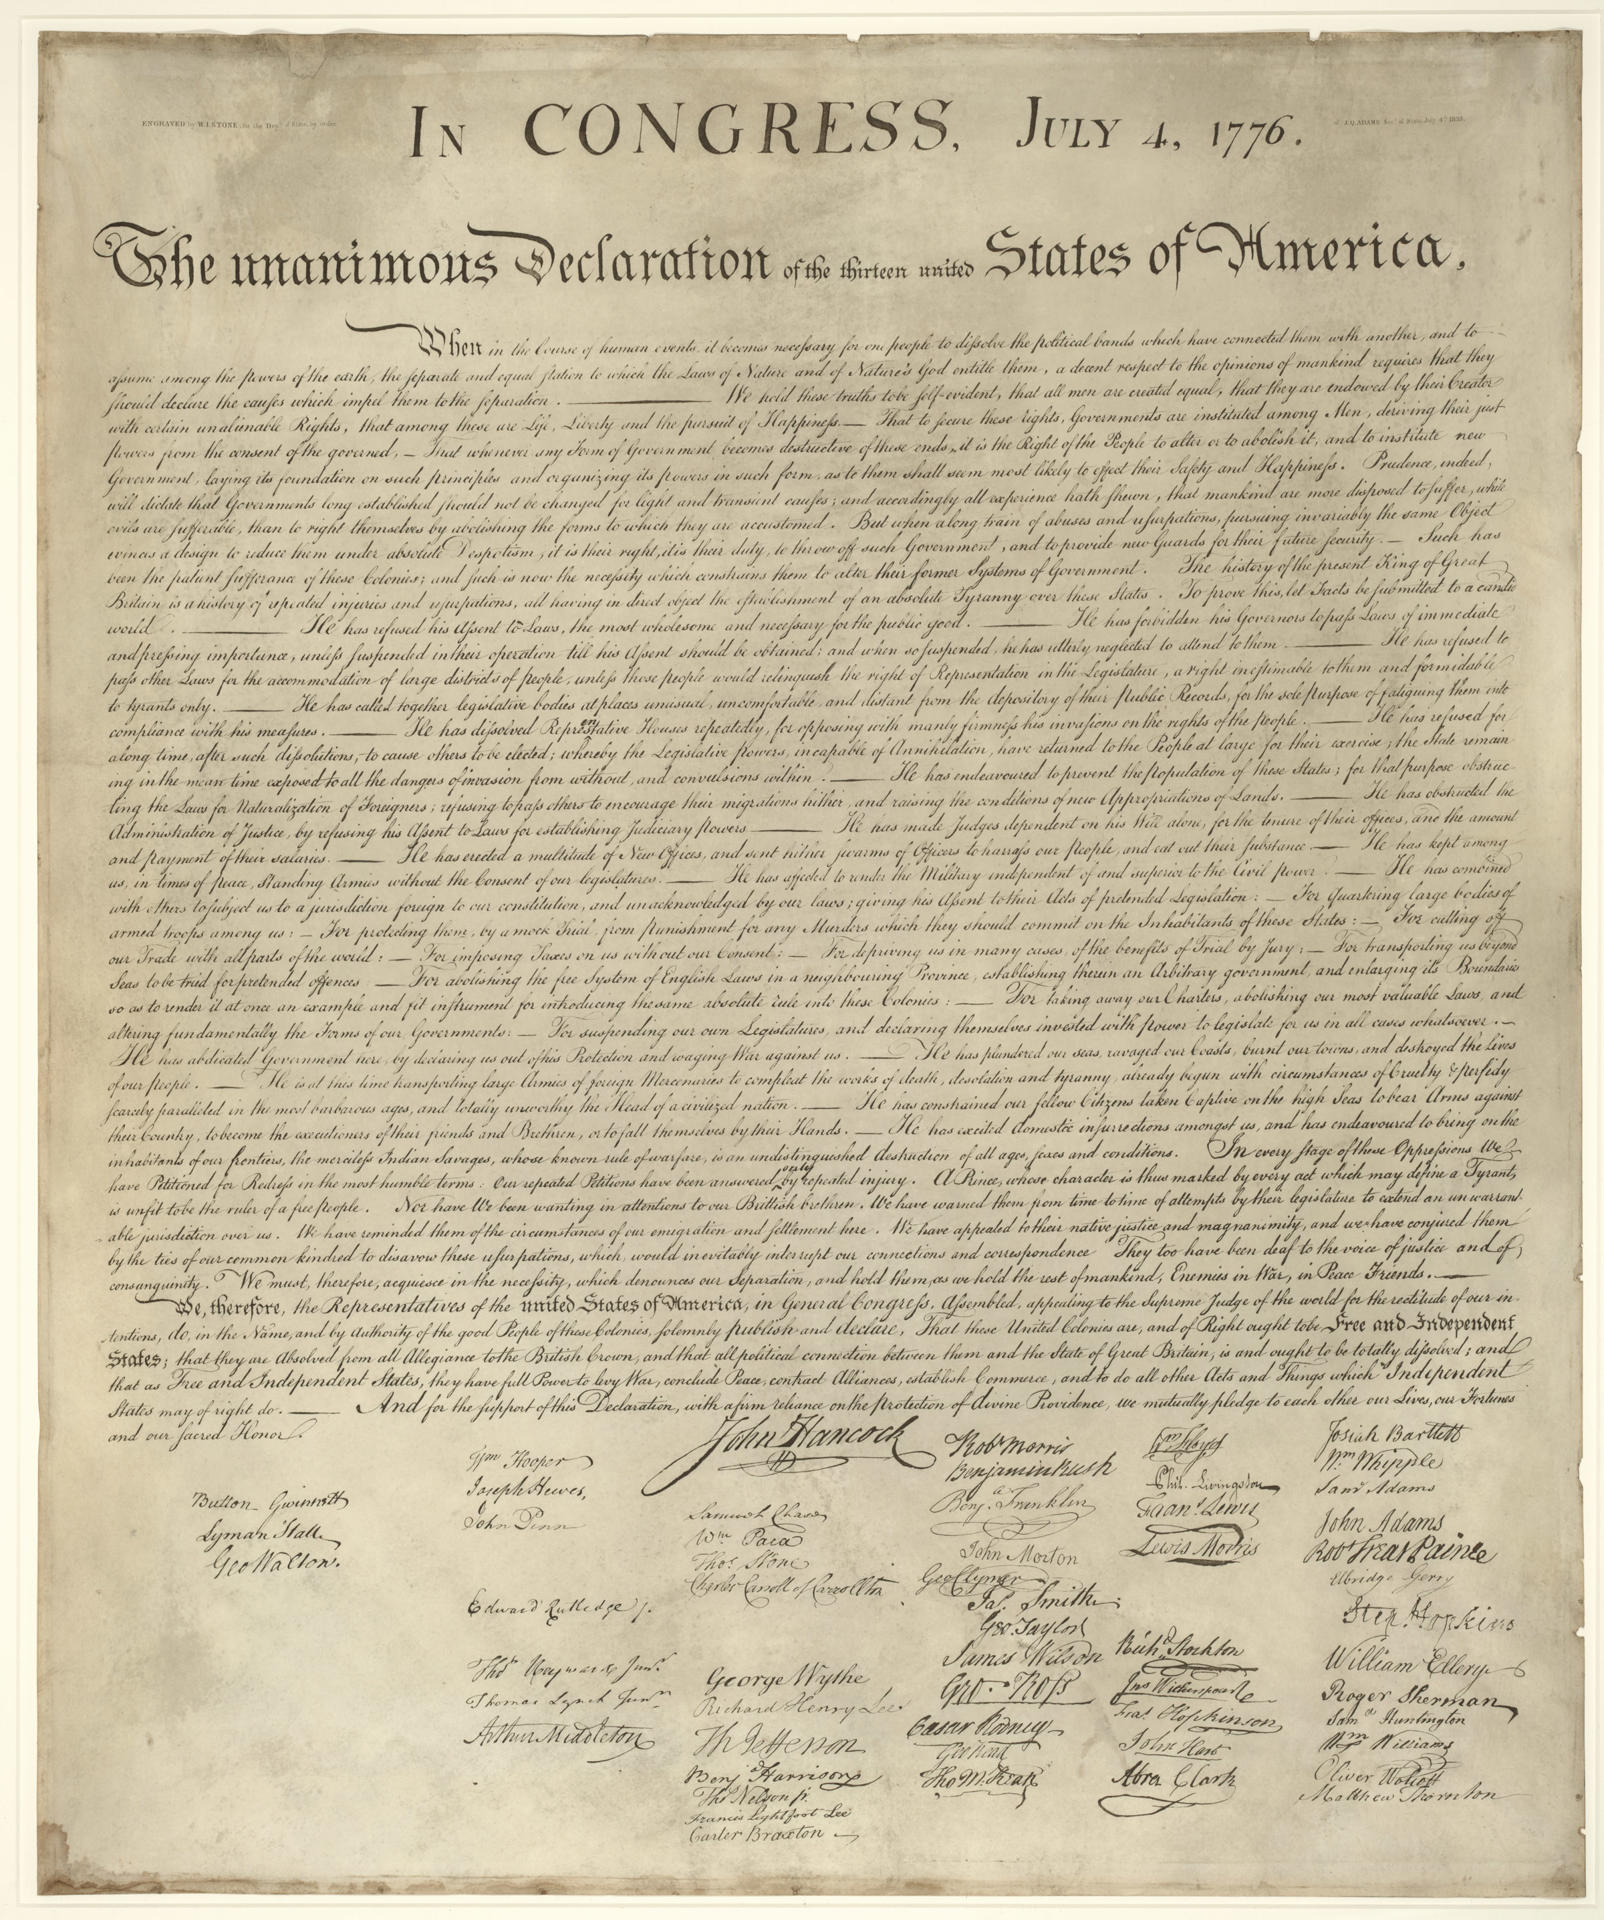 ENGRAVED by W.I.STONE, for the Dept. of State, by order
of J.Q.ADAMS Sec. of State, July 4th 1823.
In CONGRESS, July 4, 1776.
The unanimous Declaration of the thirteen united States of America,
When in the Course of human events, it becomes necessary for one people to dissolve the political bands which have connected them with another, and to
assume among the powers of the earth, the separate and equal station to which the Laws of Nature and of Nature's God entitle them, a decent respect to the opinions of mankind requires that they
should declare the causes which impel them to the separation. — We hold these truths to be self-evident, that all men are created equal, that they are endowed by their Creator
with certain unalienable Rights, that among these are Life, Liberty and the pursuit of Happiness. — That to secure these rights, Governments are instituted among Men, deriving their just
powers from the consent of the governed, — That whenever any Form of Government becomes destructive of these ends, it is the Right of the People to alter or to abolish it, and to institute new
Government, laying its foundation on such principles and organizing its powers in such form, as to them shall seem most likely to effect their Safety and Happiness. Prudence, indeed,
will dictate that Governments long established should not be changed for light and transient causes; and accordingly all experience hath shewn, that mankind are more disposed to suffer, while
evils are sufferable, than to right themselves by abolishing the forms to which they are accustomed. But when a long train of abuses and usurpations, pursuing invariably the same Object
evinces a design to reduce them under absolute Despotism, it is their right, it is their duty, to throw off such Government, and to provide new Guards for their future security. — Such has
been the patient sufferance of these Colonies; and such is now the necessity which constrains them to alter their former Systems of Government. The history of the present King of Great
Britain is a history of repeated injuries and usurpations, all having in direct object the establishment of an absolute Tyranny over these States. To prove this, let Facts be submitted to a candid
world. — He has refused his Assent to Laws, the most wholesome and necessary for the public good. — He has forbidden his Governors to pass Laws of immediate
and pressing importance, unless suspended in their operation till his Assent should be obtained; and when so suspended, he has utterly neglected to attend to them. — He has refused to
pass other Laws for the accommodation of large districts of people, unless those people would relinquish the right of Representation in the Legislature, a right inestimable to them and formidable
to tyrants only. — He has called together legislative bodies at places unusual, uncomfortable, and distant from the depository of their Public Records, for the sole purpose of fatiguing them into
compliance with his measures. — He has dissolved Representative Houses repeatedly, for opposing with manly firmness his invasions on the rights of the people. — He has refused for
a long time, after such dissolutions, to cause others to be elected; whereby the Legislative powers, incapable of Annihilation, have returned to the People at large for their exercise; the State remain
ing in the mean time exposed to all the dangers of invasion from without, and convulsions within. — He has endeavoured to prevent the population of these States; for that purpose obstruc-
ting the Laws for Naturalization of Foreigners; refusing to pass others to encourage their migrations hither, and raising the conditions of new Appropriations of Lands. — He has obstructed the
Administration of Justice, by refusing his Assent to Laws for establishing Judiciary powers — He has made Judges dependent on his Will alone, for the tenure of their offices, and the amount
and payment of their salaries. — He has erected a multitude of New Offices, and sent hither swarms of Officers to harrass our people, and eat out their substance. — He has kept among
us, in times of peace, Standing Armies without the Consent of our legislatures. — He has affected to render the Military independent of and superior to the Civil power. — He has combined
with others to subject us to a jurisdiction foreign to our constitution, and unacknowledged by our laws; giving his Assent to their Acts of pretended Legislation: — For Quartering large bodies of
armed troops among us: — For protecting them, by a mock Trial, from punishment for any Murders which they should commit on the Inhabitants of these States: — For cutting off
our Trade with all parts of the world: — For imposing Taxes on us without our Consent: — For depriving us in many cases, of the benefits of Trial by Jury: — For transporting us beyond
Seas to be tried for pretended offences — For abolishing the free System of English Laws in a neighbouring Province, establishing therein an Arbitrary government, and enlarging its Boundaries
so as to render it at once an example and fit instrument for introducing the same absolute rule into these Colonies: — For taking away our Charters, abolishing our most valuable Laws, and
altering fundamentally the Forms of our Governments: — For suspending our own Legislatures, and declaring themselves invested with power to legislate for us in all cases whatsoever. —
He has abdicated Government here, by declaring us out of his Protection and waging War against us. — He has plundered our seas, ravaged our Coasts, burnt our towns, and destroyed the Lives
of our people. — He is at this time transporting large Armies of foreign Mercenaries to compleat the works of death, desolation and tyranny, already begun with circumstances of Cruelty & perfidy
scarcely paralleled in the most barbarous ages, and totally unworthy the Head of a civilized nation. — He has constrained our fellow Citizens taken Captive on the high Seas to bear Arms against
their Country, to become the executioners of their friends and Brethren, or to fall themselves by their Hands. — He has excited domestic insurrections amongst us, and has endeavoured to bring on the
inhabitants of our frontiers, the merciless Indian Savages, whose known rule of warfare, is an undistinguished destruction of all ages, sexes and conditions. In every stage of these Oppressions We
have Petitioned for Redress in the most humble terms: Our repeated Petitions have been answered only by repeated injury. A Prince, whose character is thus marked by every act which may define a Tyrant,
is unfit to be the ruler of a free people. Nor have We been wanting in attentions to our Brittish brethren. We have warned them from time to time of attempts by their legislature to extend an unwarrant-
able jurisdiction over us. We have reminded them of the circumstances of our emigration and settlement here. We have appealed to their native justice and magnanimity, and we have conjured them
by the ties of our common kindred to disavow these usurpations, which, would inevitably interrupt our connections and correspondence They too have been deaf to the voice of justice and of
consanguinity. We must, therefore, acquiesce in the necessity, which denounces our Separation, and hold them, as we hold the rest of mankind, Enemies in War, in Peace Friends. —
We, therefore, the Representatives of the united States of America, in General Congress, Assembled, appealing to the Supreme Judge of the world for the rectitude of our in-
tentions, do, in the Name, and by Authority of the good People of these Colonies, solemnly publish and declare, That these United Colonies are, and of Right ought to be Free and Independent
States; that they are Absolved from all Allegiance to the British Crown, and that all political connection between them and the State of Great Britain, is and ought to be totally dissolved; and
that as Free and Independent States, they have full Power to levy War, conclude Peace, contract Alliances, establish Commerce, and to do all other Acts and Things which Independent
States may of right do. — And for the support of this Declaration, with a firm reliance on the Protection of divine Providence, we mutually pledge to each other our Lives, our Fortunes
and our sacred Honor.
Button Gwinnett
Lyman Hall
Geo Walton.
Wm Hooper
Joseph Hewes,
John Penn
Edward Rutledge /.
Thos Heyward Junr.
Thomas Lynch Junr.
Arthur Middleton
John Hancock
Samuel Chase
Wm Paca
Thos. Stone
Charles Carroll of Carrollton
George Wythe
Richard Henry Lee
Th Jefferson
Benj Harrison
Thos Nelson jr.
Francis Lightfoot Lee
Carter Braxton
Robt Morris
Benjamin Rush
Benj. Franklin
John Morton
Geo Clymer
Jas. Smith
Geo. Taylor
James Wilson
Geo. Ross
Caesar Rodney
Geo Read
Tho M:Kean
Wm Floyd
Phil. Livingston
Frans. Lewis
Lewis Morris
Richd. Stockton
Jno Witherspoon
Fras. Hopkinson
John Hart
Abra Clark
Josiah Bartlett
Wm Whipple
Saml Adams
John Adams
Robt Treat Paine
Elbridge Gerry
Step. Hopkins
William Ellery
Roger Sherman
Saml Huntington
Wm Williams
Oliver Wolcott
Matthew Thornton